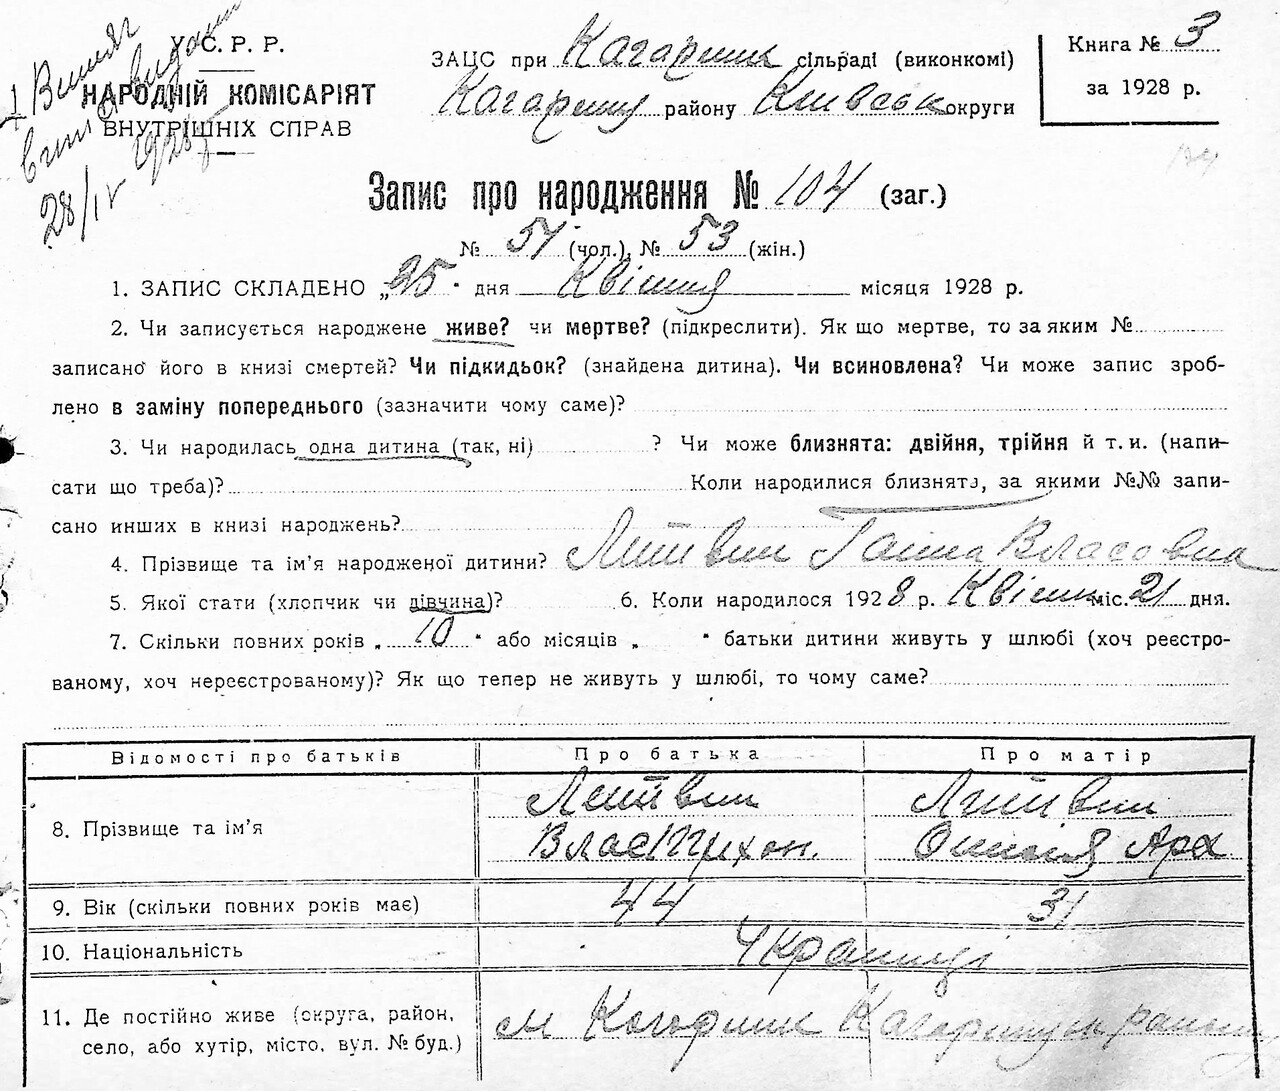 У. С. Р. Р.
НАРОДНІЙ КОМІСАРІЯТ
ВНУТРІШНІХ СПРАВ
28/IV 1928
ЗАЦС при Кагарлик сільраді (виконкомі)
Кагарлиц району Київськ округи
Книга № 3
за 1928 р.
Запис про народження № 104 (заг.)
№ 51 (чол.), № 53 (жін.)
1. ЗАПИС СКЛАДЕНО „25" дня Квітня місяця 1928 р.
2. Чи записується народжене живе? чи мертве? (підкреслити). Як що мертве, то за яким №
записано його в книзі смертей? Чи підкидьок? (знайдена дитина). Чи всиновлена? Чи може запис зроб-
лено в заміну попереднього (зазначити чому саме)?
3. Чи народилась одна дитина (так, ні) ? Чи може близнята: двійня, трійня й т. и. (напи-
сати що треба)? Коли народилися близнята, за якими №№ запи-
сано инших в книзі народжень?
4. Прізвище та ім'я народженої дитини? Литвин Ганна Власовна
5. Якої стати (хлопчик чи дівчина)? 6. Коли народилося 1928 р. Квітня міс. 21 дня.
7. Скільки повних років „ 10 " або місяців „ " батьки дитини живуть у шлюбі (хоч реєстро-
ваному, хоч нереєстрованому)? Як що тепер не живуть у шлюбі, то чому саме?
Відомості про батьків Про батька Про матір
8. Прізвище та ім'я Литвин Влас Тихон. Литвин
9. Вік (скільки повних років має) 44 31
10. Національність Українці
11. Де постійно живе (округа, район,
село, або хутір, місто, вул. № буд.) м Кагарлик Кагарлицьк району